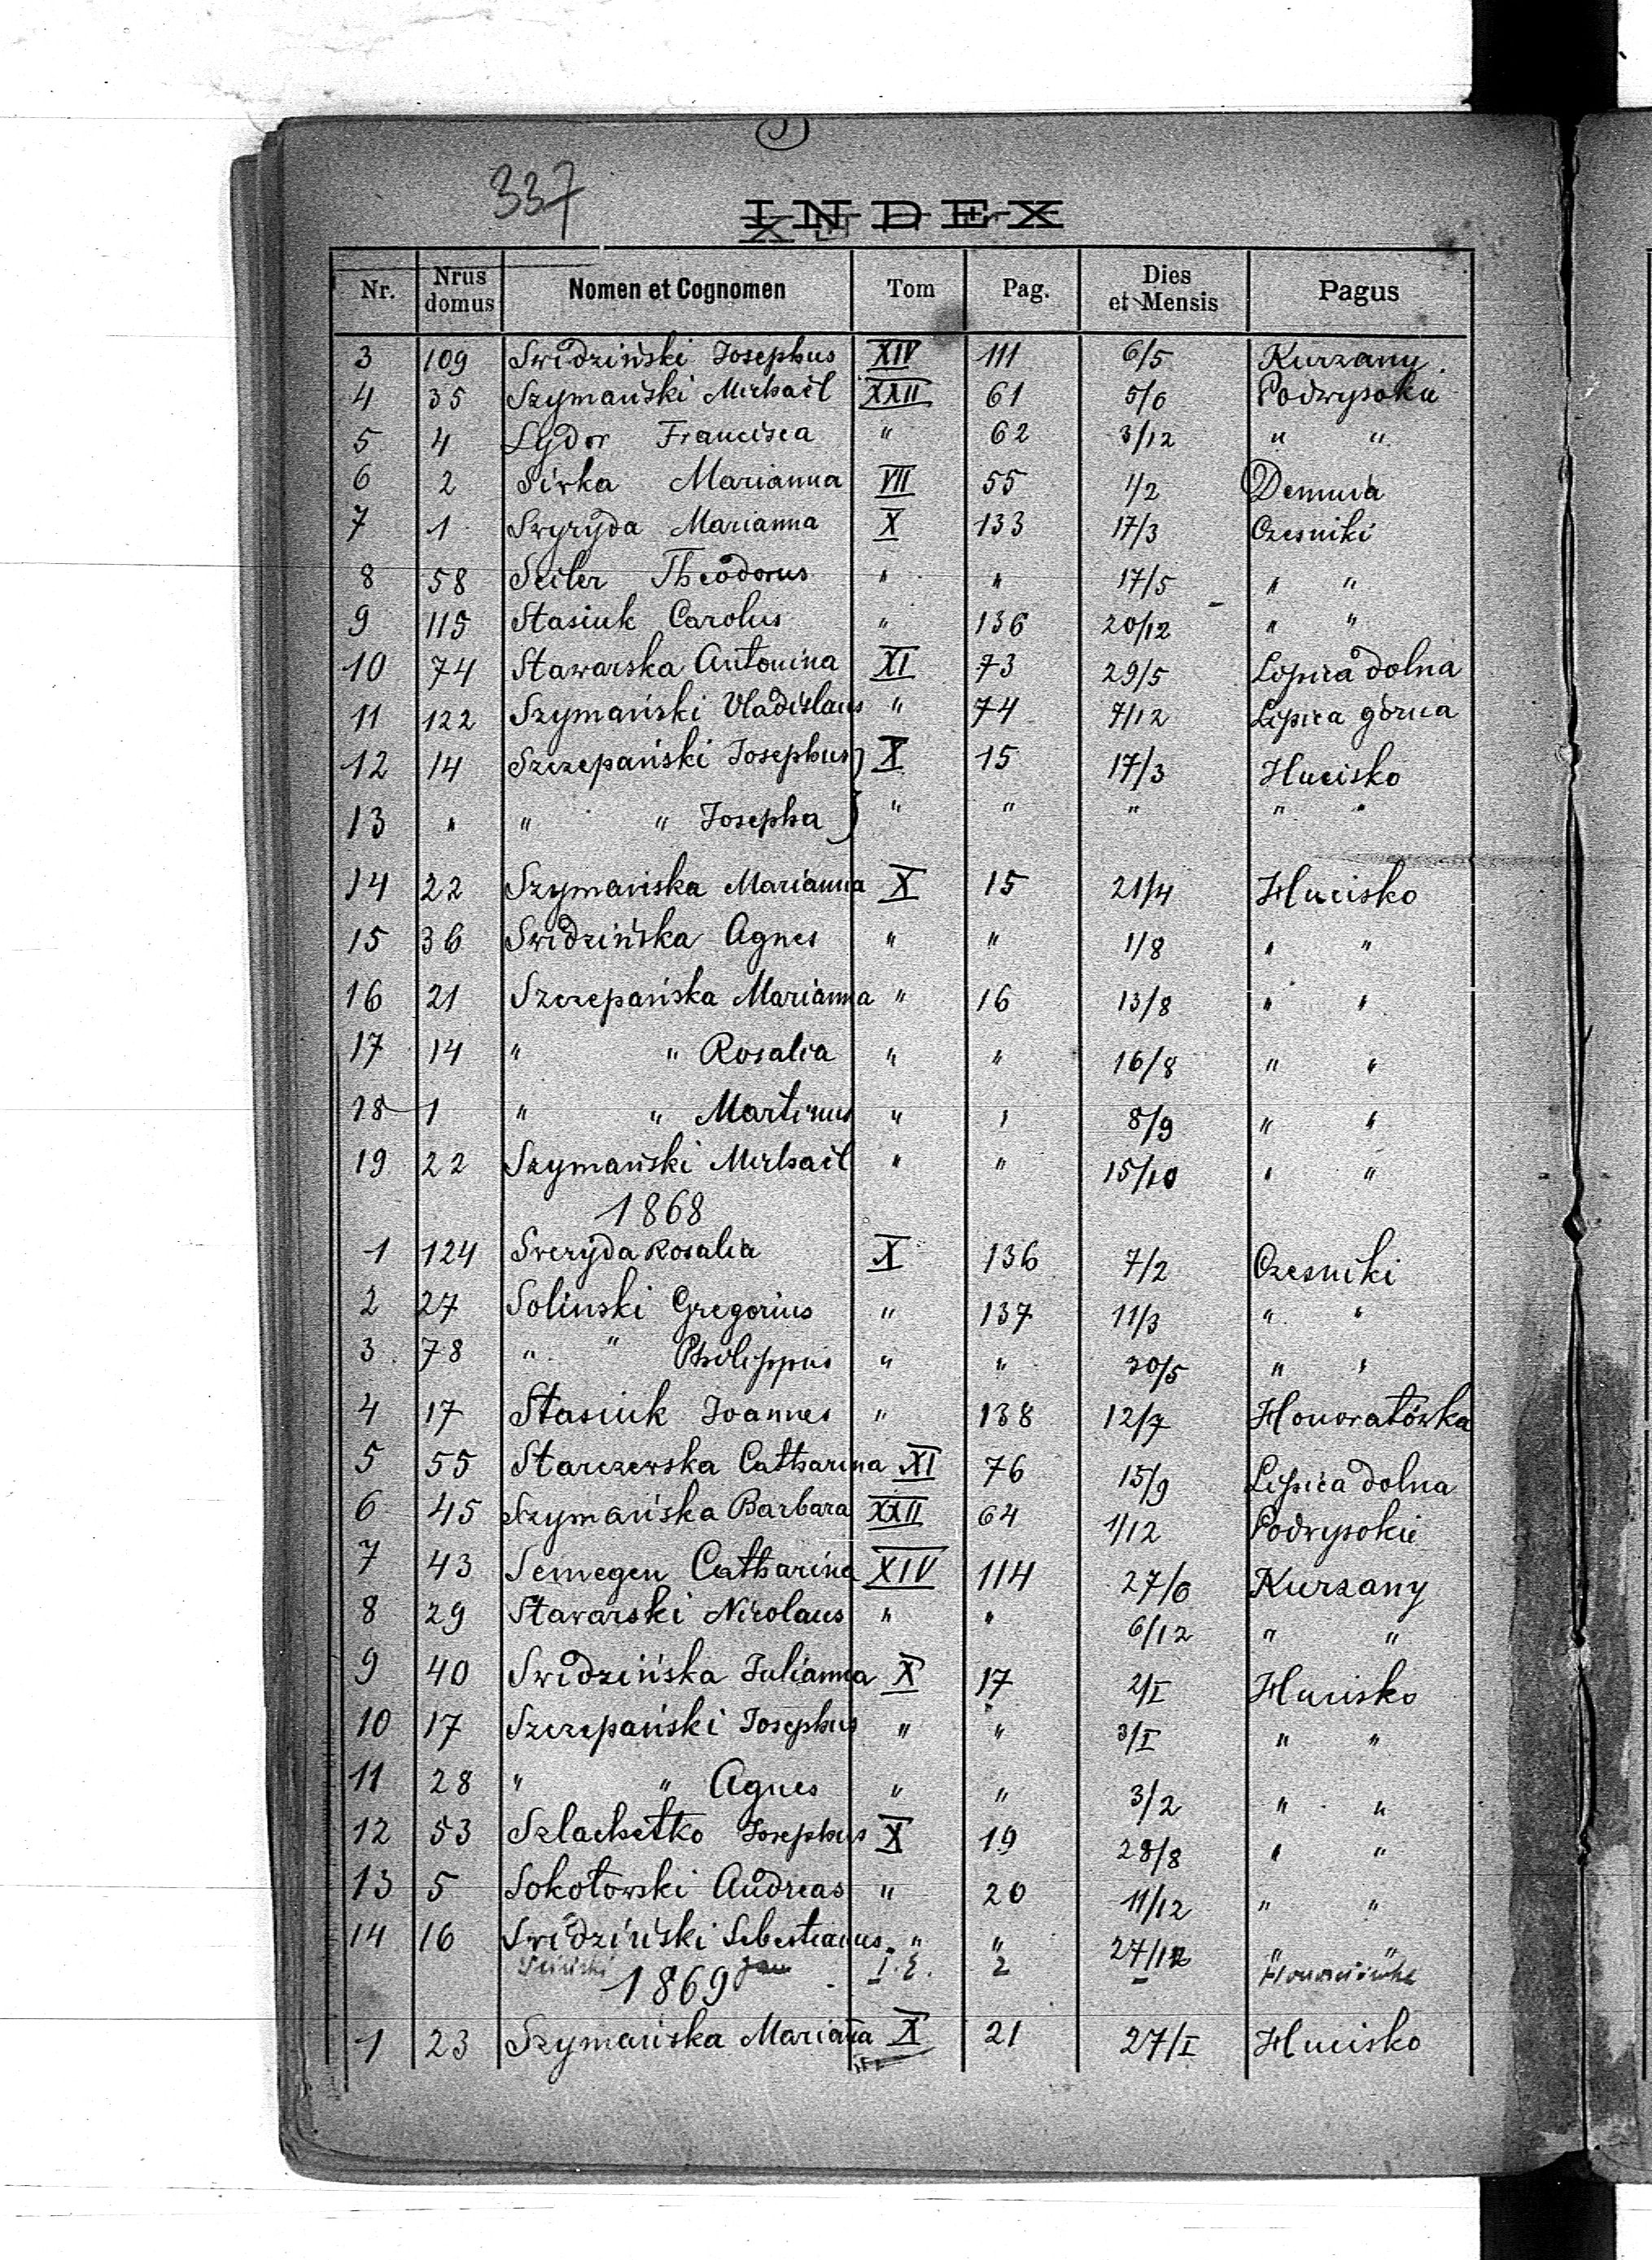 337
INDEX
Nr. Nrus domus Nomen et Cognomen Tom Pag. Dies et Mensis Pagus
3 109 Swidziński Josephus XIV 111 6/5 Kurzany
4 35 Szymański Michaël XXII 61 5/6 Podwysokie
5 4 Sydor Francisca " 62 3/12 " "
6 2 Sirka Marianna VII 55 1/2 Demnia
7 1 Swyryda Marianna X 133 17/3 Czesniki
8 58 Seiler Theodorus " " 17/5 " "
9 115 Stasiuk Carolus " 136 20/12 " "
10 74 Stawarska Antonina XI 73 29/5 Lipica dolna
11 122 Szymański Vladislaus " 74 7/12 Lipica górna
12 14 Szczepański Josephus } X 15 17/3 Hucisko
13 " " " Josepha } " " " " "
14 22 Szymańska Marianna X 15 21/4 Hucisko
15 36 Swidzińska Agnes " " 1/8 " "
16 21 Szczepańska Marianna " 16 13/8 " "
17 14 " " Rosalia " " 16/8 " "
18 1 " " Martinus " " 8/9 " "
19 22 Szymański Michaël " " 15/10 " "
1868
1 124 Sveryda Rosalia X 136 7/2 Czesniki
2 27 Solinski Gregorius " 137 11/3 " "
3 78 " " Philippus " " 20/5 " "
4 17 Stasiuk Joannes " 138 12/7 Honoratówka
5 55 Starczewska Catharina XI 76 15/9 Lipica dolna
6 45 Szymańska Barbara XXII 64 1/12 Podwysokie
7 43 Semegen Catharina XIV 114 27/6 Kurzany
8 29 Stawarski Nicolaus " " 6/12 " "
9 40 Swidzińska Julianna X 17 2/I Hucisko
10 17 Szczepański Josephus " " 3/I " "
11 28 " " Agnes " " 3/2 " "
12 53 Szlachetko Josephus X 19 28/8 " "
13 5 Sokołowski Andreas " 20 11/12 " "
14 16 Swidziński Sebestianus " " 27/12 " "
Jan I. 2
1869
1 23 Szymańska Mariana X 21 27/I Hucisko